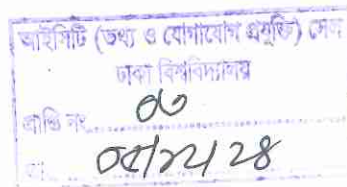 আইসিটি (তথ্য ও যোগাযোগ প্রযুক্তি) সেল
ঢাকা বিশ্ববিদ্যালয়
প্রাপ্তি নং ০৩
০৫/১২/২৪